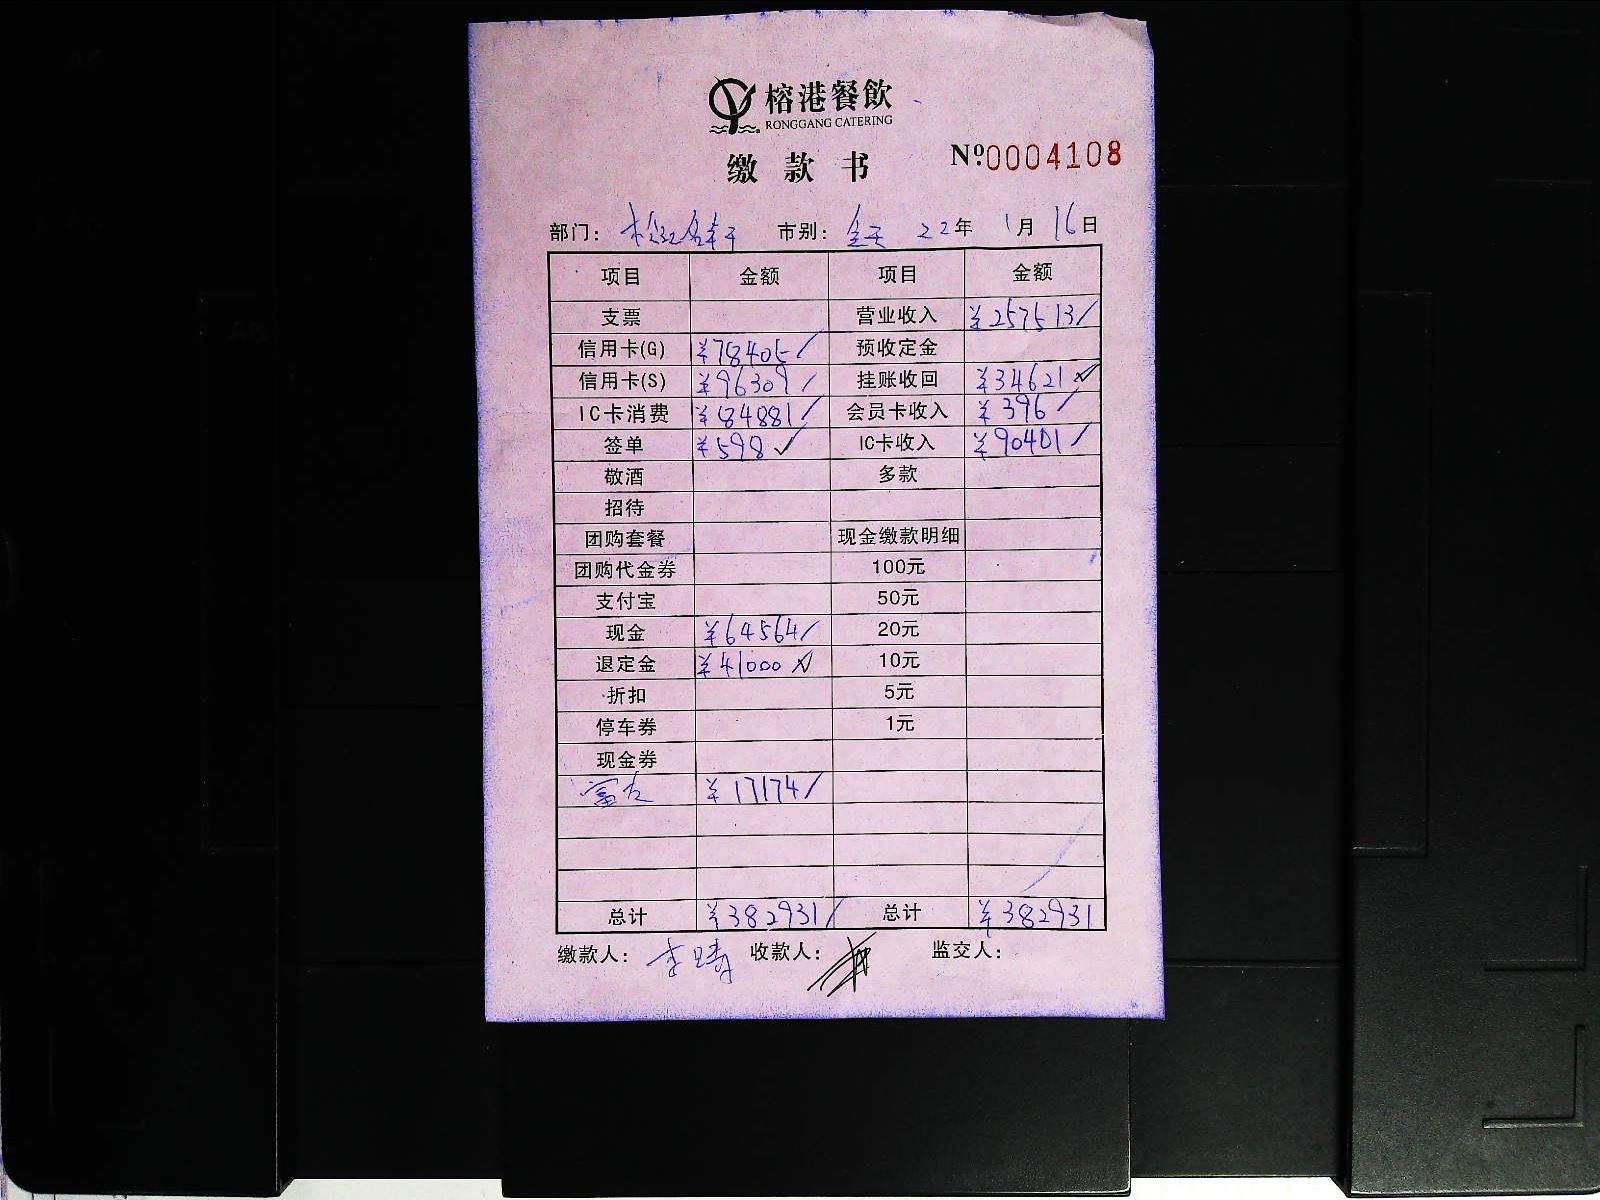 榕港餐飲
RONGGANG CATERING
缴款书 Nº0004108
部门： 市别：全天 22年 1月 16日
项目 金额 项目 金额
支票 营业收入 ¥257513
信用卡(G) ¥78405 预收定金
信用卡(S) ¥96309 挂账收回 ¥34621
IC卡消费 ¥84881 会员卡收入 ¥396
签单 ¥598 IC卡收入 ¥90401
敬酒 多款
招待
团购套餐 现金缴款明细
团购代金券 100元
支付宝 50元
现金 ¥64564 20元
退定金 ¥41000 10元
折扣 5元
停车券 1元
现金券
富友 ¥17174
总计 ¥382931 总计 ¥382931
缴款人：李 收款人： 监交人：